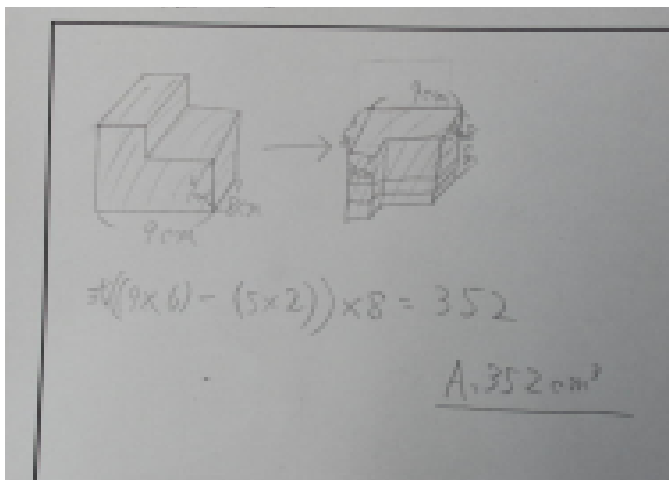 9cm
8cm
9cm
式((9×6)-(5×2))×8=352
A.352cm³